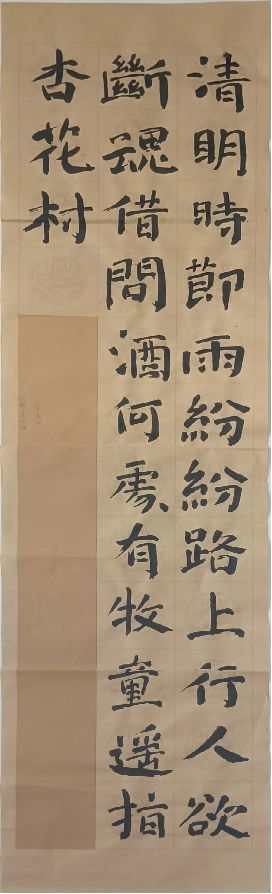 清明時節雨紛紛路上行人欲
斷魂借問酒何處有牧童遥指
杏花村